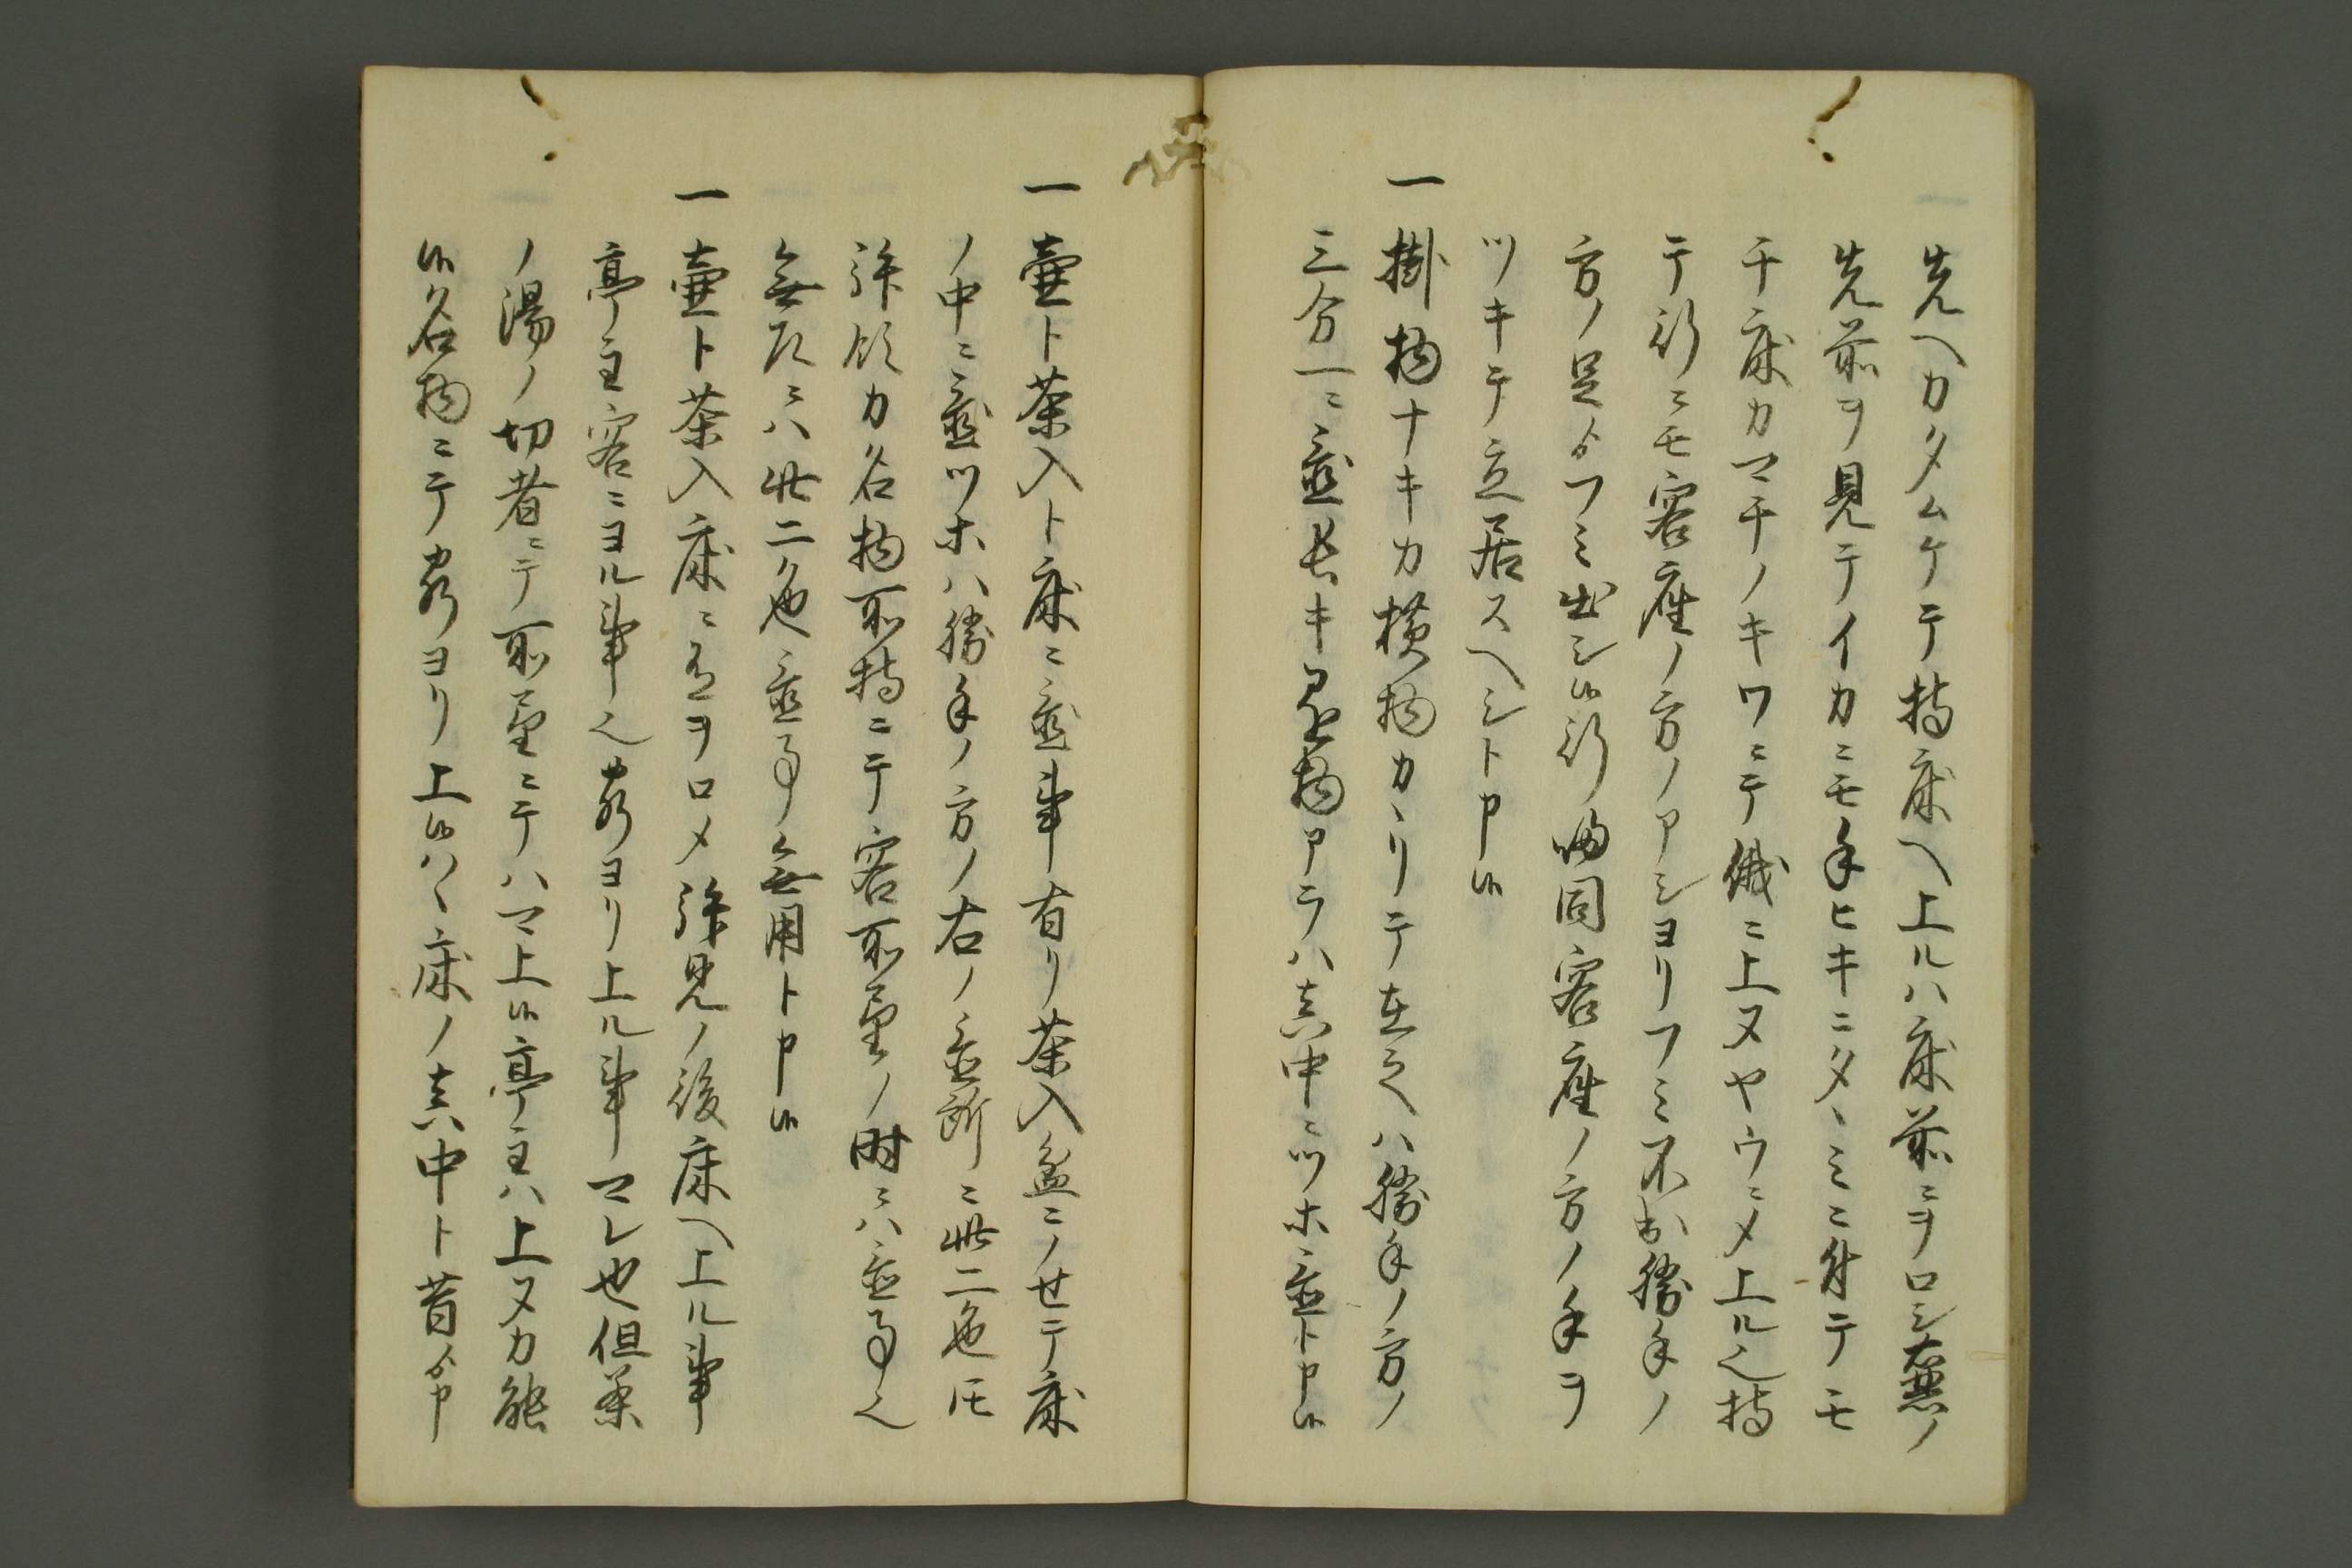 先ヘカタムケテ持床ヘ上ルハ床前ニヲロシ壷ノ
先前ヲ見テイカニモ手ヒキニタヽミニ付テモ
チ床カマチノキワニテ俄ニ上ヌヤウニメ上ル也持
テ行ニモ客座ノ方ノアシヨリフミ不出勝手ノ
方ノ足ゟフミ出シ候行帰同客座ノ方ノ手ヲ
ツキテ立居スヘシト申候
一掛物ナキカ横物カヽリテ在之ハ勝手ノ方ノ
三分一ニ置長キ墨物アラハ真中ニツホ置ト申候
一壷ト茶入ト床ニ置事有リ茶入盆ニノせテ床
ノ中ニ置ツホハ勝手ノ方ノ右ノ置所ニ此二色ドモ
拝領カ名物所持ニテ客所望ノ時ニハ置事也
無左ニハ此二色置事無用ト申候
一壷ト茶入床ニ置ヲロメ拝見ノ後床ヘ上ル事
亭主客ニヨル事也客ヨリ上ル事マレ也但茶
ノ湯ノ切者ニテ所望ニテハマ上候亭主ハ上ヌカ能
候名物ニテ客ヨリ上候ハヽ床ノ真中ト昔ゟ申